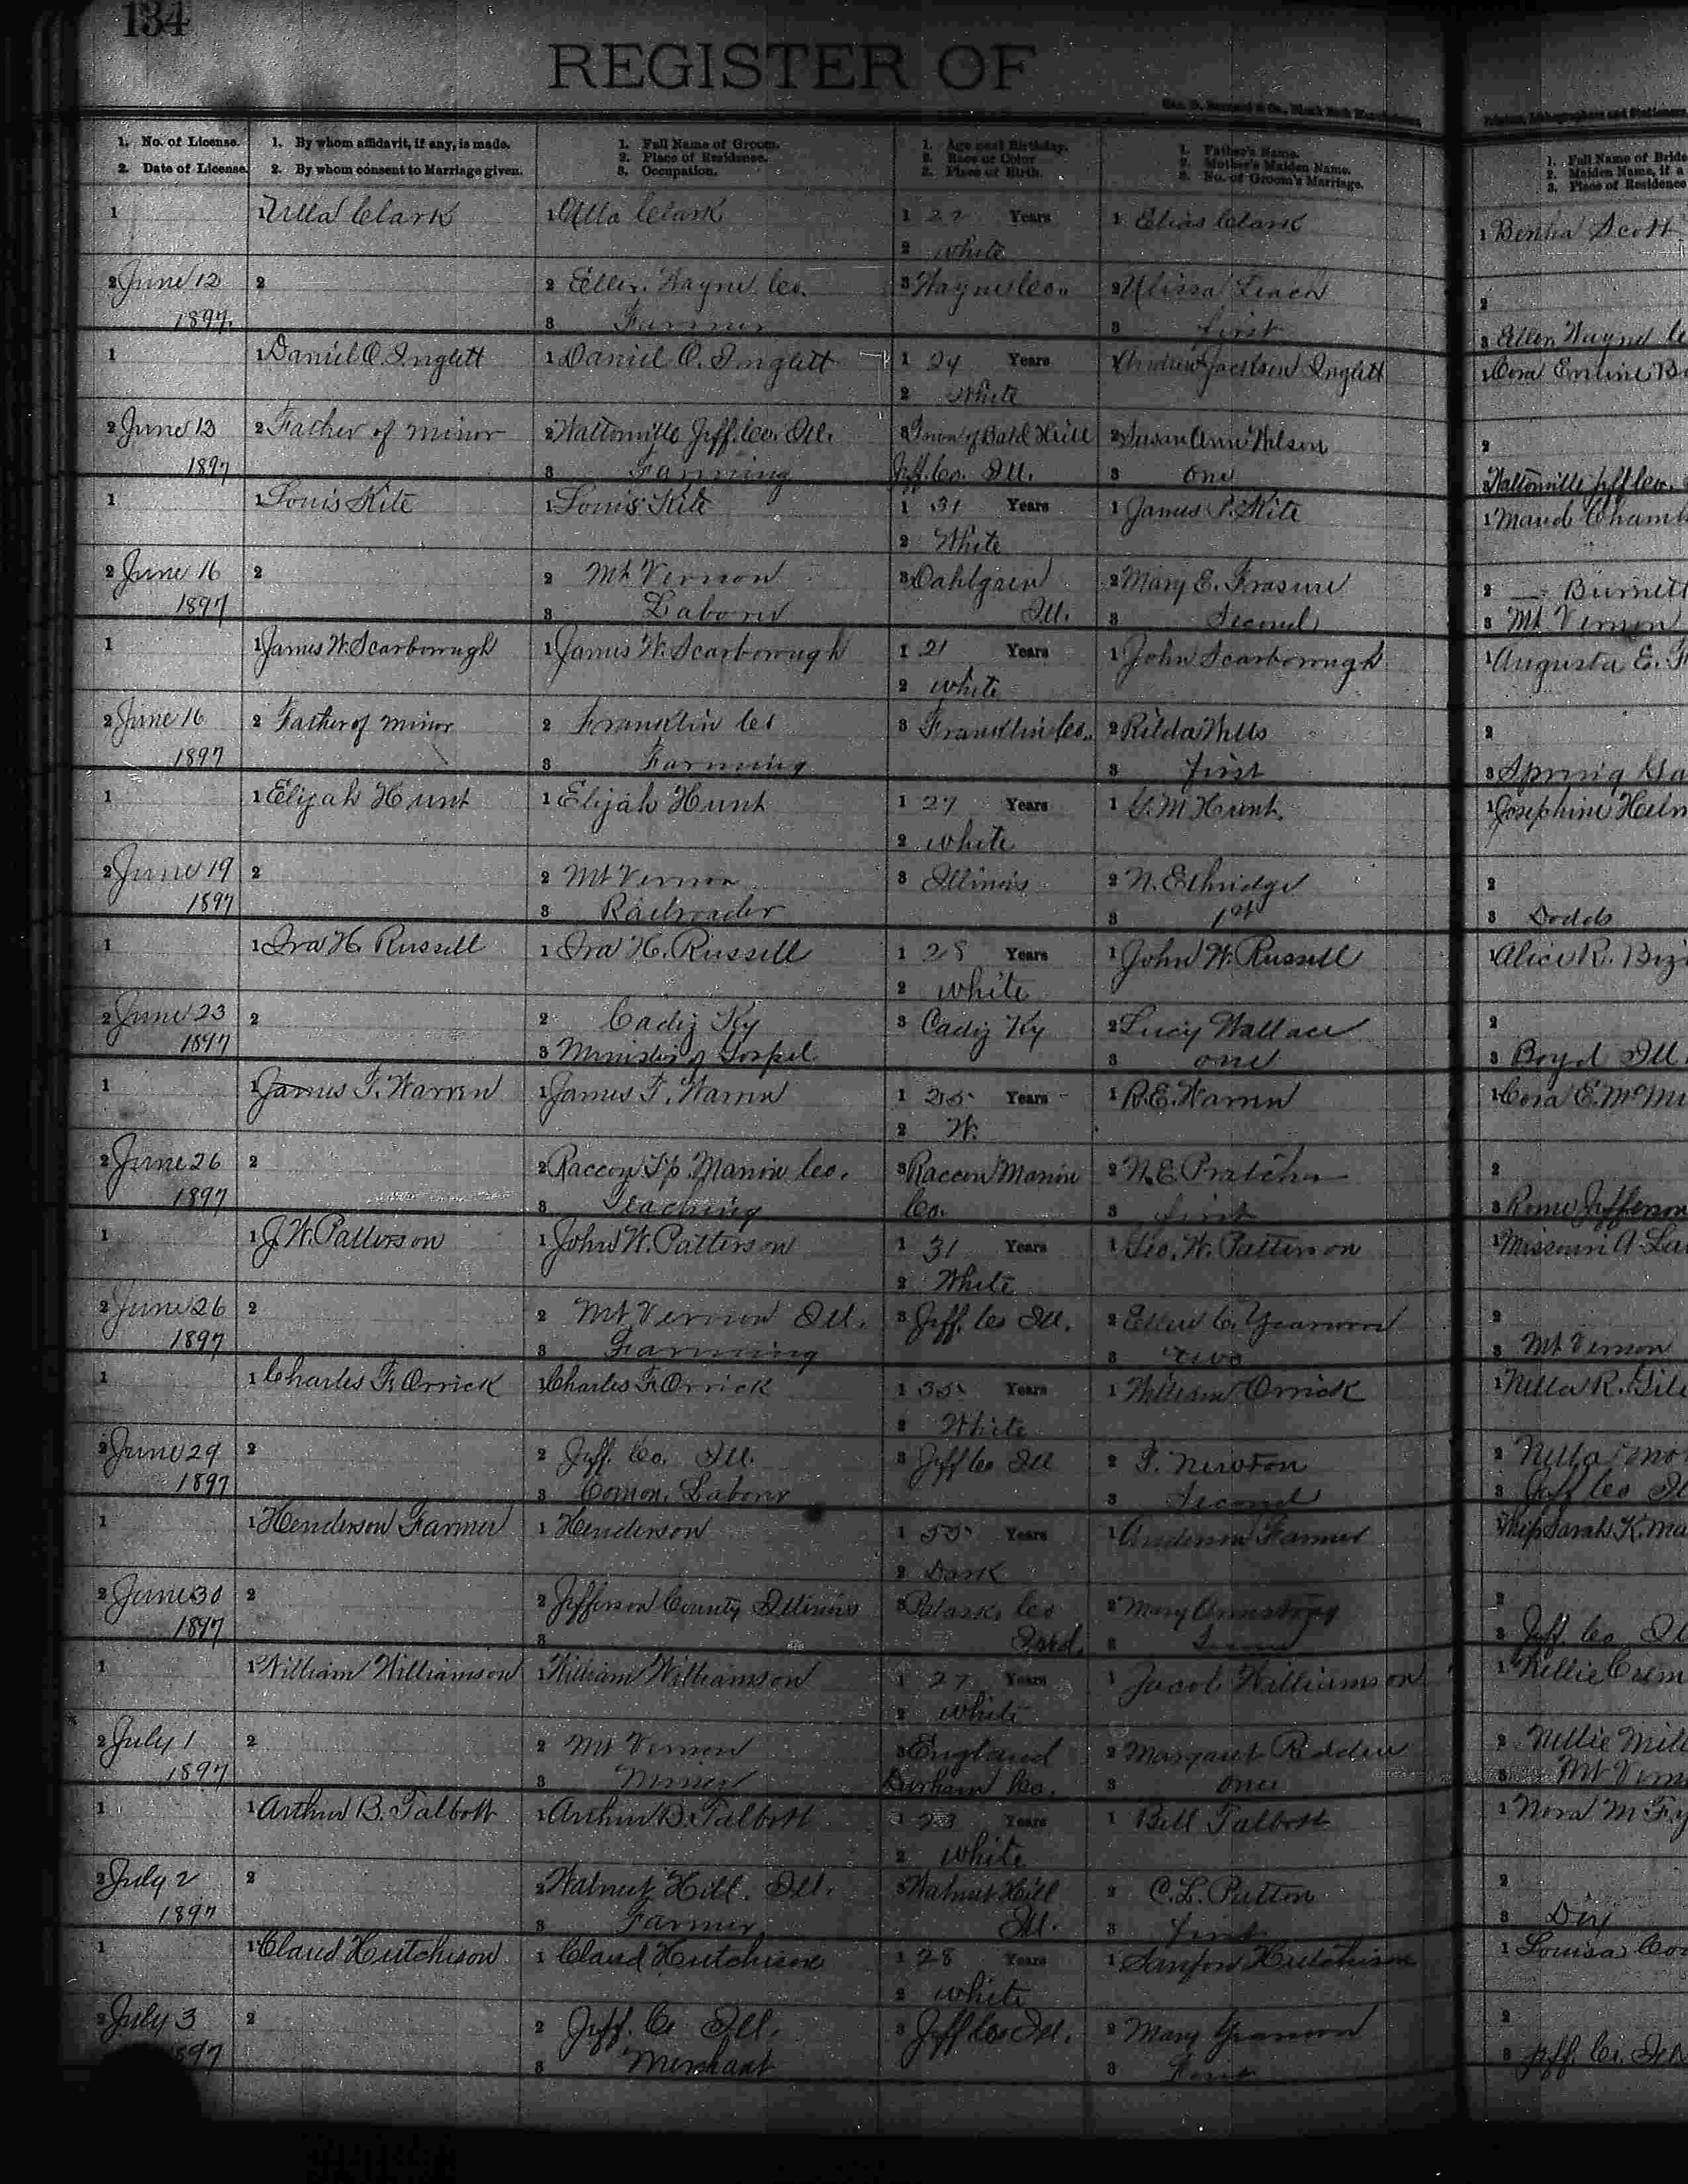 134
REGISTER OF
1. No. of License.
2. Date of License.
1. By whom affidavit, if any, is made.
2. By whom consent to Marriage given.
1. Full Name of Groom.
2. Place of Residence.
3. Occupation.
1. Age next Birthday.
2. Race or Color
3. Place of Birth.
1. Father's Name.
2. Mother's Maiden Name.
3. No. of Groom's Marriage.
1. Full Name of Bride
2. Maiden Name, if a
3. Place of Residence
1 1 Ulla Clark 1 Ulla Clark 1 22 Years 1 Elias Clark 1 Bertha Scott
2 white
2 June 12 2 2 Wayne Co. 3 Wayne Co. 2 Leach 2
1897. 3 Farmer 3 first 3 Wayne
1 1 Daniel O. Inglett 1 Daniel O. Inglett 1 24 Years 1 Andrew Jackson Inglett 1 Cora
2 White
2 June 13 2 Father of minor 2 Waltonville Jeff. Co. Ill. 3 Town of Bald Hill 2 Susan Ann Wilson 2
1897 3 Farming Jeff. Co. Ill. 3 one 3 Waltonville Jeff Co.
1 1 Louis Kite 1 Louis Kite 1 31 Years 1 James P. Kite 1 Maud Chamb
2 White
2 June 16 2 2 Mt Vernon 3 Dahlgren 2 Mary E. Frasure 2 Burnett
1897 3 Laborer Ill. 3 Second 3 Mt Vernon
1 1 James W. Scarborough 1 James W. Scarborough 1 21 Years 1 John Scarborough 1 Augusta E. F
2 white
2 June 16 2 Father of minor 2 Franklin Co 3 Franklin Co. 2 Rilda Wells 2
1897 3 Farming 3 first 3 Spring Ga
1 1 Elijah Hunt 1 Elijah Hunt 1 27 Years 1 M Hunt 1 Josephine Helm
2 white
2 June 19 2 2 Mt Vernon 3 Illinois 2 N. Ethridge 2
1897 3 Railroader 3 1st 3 Dodds
1 1 Ira H. Russell 1 Ira H. Russell 1 28 Years 1 John W. Russell 1 Alice R. Biz
2 white
2 June 23 2 2 Cadiz Ky 3 Cadiz Ky 2 Lucy Wallace 2
1897 3 Minister of Gospel 3 one 3 Boyd Ill.
1 1 James F. Warren 1 James F. Warren 1 25 Years 1 R. E. Warren 1 Cora E. McMi
2 W.
2 June 26 2 2 Raccon Tp. Marion Co. 3 Raccon Marion 2 N. E. Pratcher 2
1897 3 Teaching Co. 3 first 3 Rome Jefferson
1 1 J. W. Patterson 1 John W. Patterson 1 31 Years 1 Geo. W. Patterson 1 Missouri A. La
2 White
2 June 26 2 2 Mt Vernon Ill. 3 Jeff. Co Ill. 2 Ellen C. Yearwood 2
1897 3 Farming 3 two 3 Mt Vernon
1 1 Charles F. Orrick 1 Charles F. Orrick 1 35 Years 1 William Orrick 1 Nella R. Gile
2 White
2 June 29 2 2 Jeff. Co. Ill. 3 Jeff Co Ill 2 F. Newton 2 Nella
1897 3 Comon. Laborer 3 Second 3 Jeff Co Il
1 1 Henderson Farmer 1 Henderson 1 55 Years 1 Anderson Farmer 1 Miss Sarah K. Ma
2 Dark
2 June 30 2 2 Jefferson County Illinois 3 Co 2 Mary Armstrong 2
1897 3 3 3 Jeff. Co Il
1 1 William Williamson 1 William Williamson 1 27 Years 1 Jacob Williamson 1 Nellie Crem
2 white
2 July 1 2 2 Mt Vernon 3 England 2 Margaret 2 Nellie Mil
1897 3 Miner Durham Co. 3 once 3 Mt Vern
1 1 Arthur B. Talbott 1 Arthur B. Talbott 1 23 Years 1 Bill Talbott 1 Nora M Fry
2 white
2 July 2 2 2 Walnut Hill. Ill. 3 Walnut Hill 2 C. L. Patton 2
1897 3 Farmer Ill. 3 first 3 Dix
1 1 Claud Hutchison 1 Claud Hutchison 1 28 Years 1 Sanford Hutchison 1 Louisa Co
2 white
2 July 3 2 2 Jeff. Co Ill. 3 Jeff Co Ill. 2 Mary 2
1897 3 Merchant 3 First 3 Jeff. Co. Ill